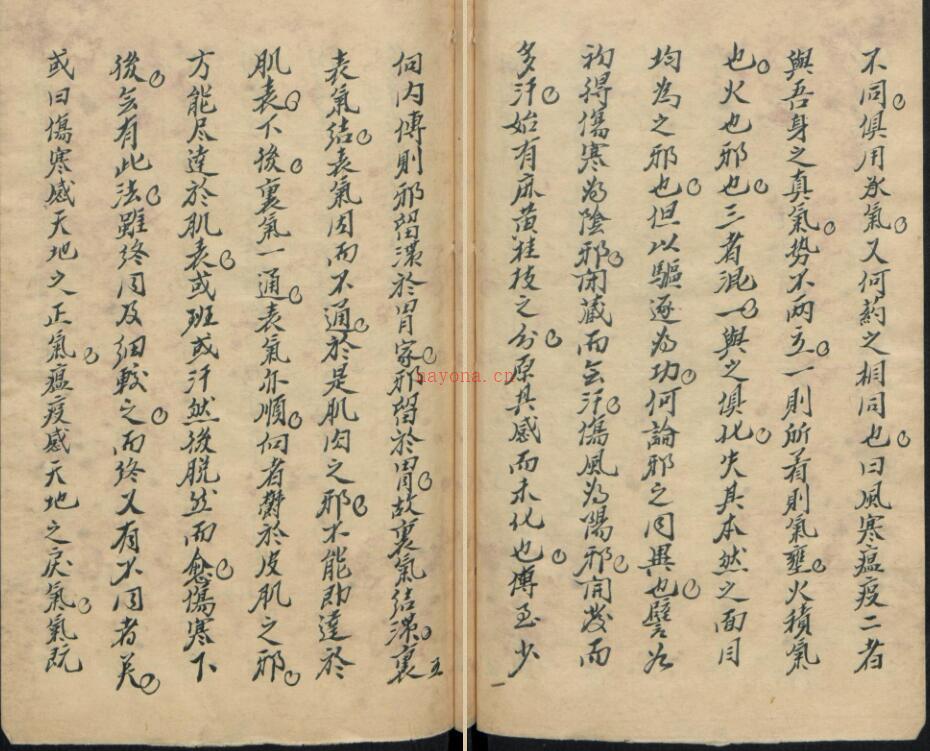 不同俱用承氣又何药之相同也曰風寒瘟疫二者
與吾身之真氣勢不两立一則所着則氣壅火積氣
也火也邪也三者混一與之俱化失其本然之面目
均為之邪也但以驅逐為功何論邪之同異也譬如
初得傷寒為陰邪閉藏而無汗傷風為陽邪開發而
多汗始有麻黄桂枝之分原其感而未化也傳至少
向内傳則邪留滞於胃家邪留於胃故裏氣结滞裏
表氣结表氣因而不通於是肌肉之邪不能即達於
肌表下後裏氣一通表氣亦順向者鬱於皮肌之邪
方能尽達於肌表或班或汗然後脱然而愈傷寒下
後無有此法雖终同及细較之而终又有不同者矣
或曰傷寒感天地之正氣瘟疫感天地之戾氣氣既
五
一
nayona.cn